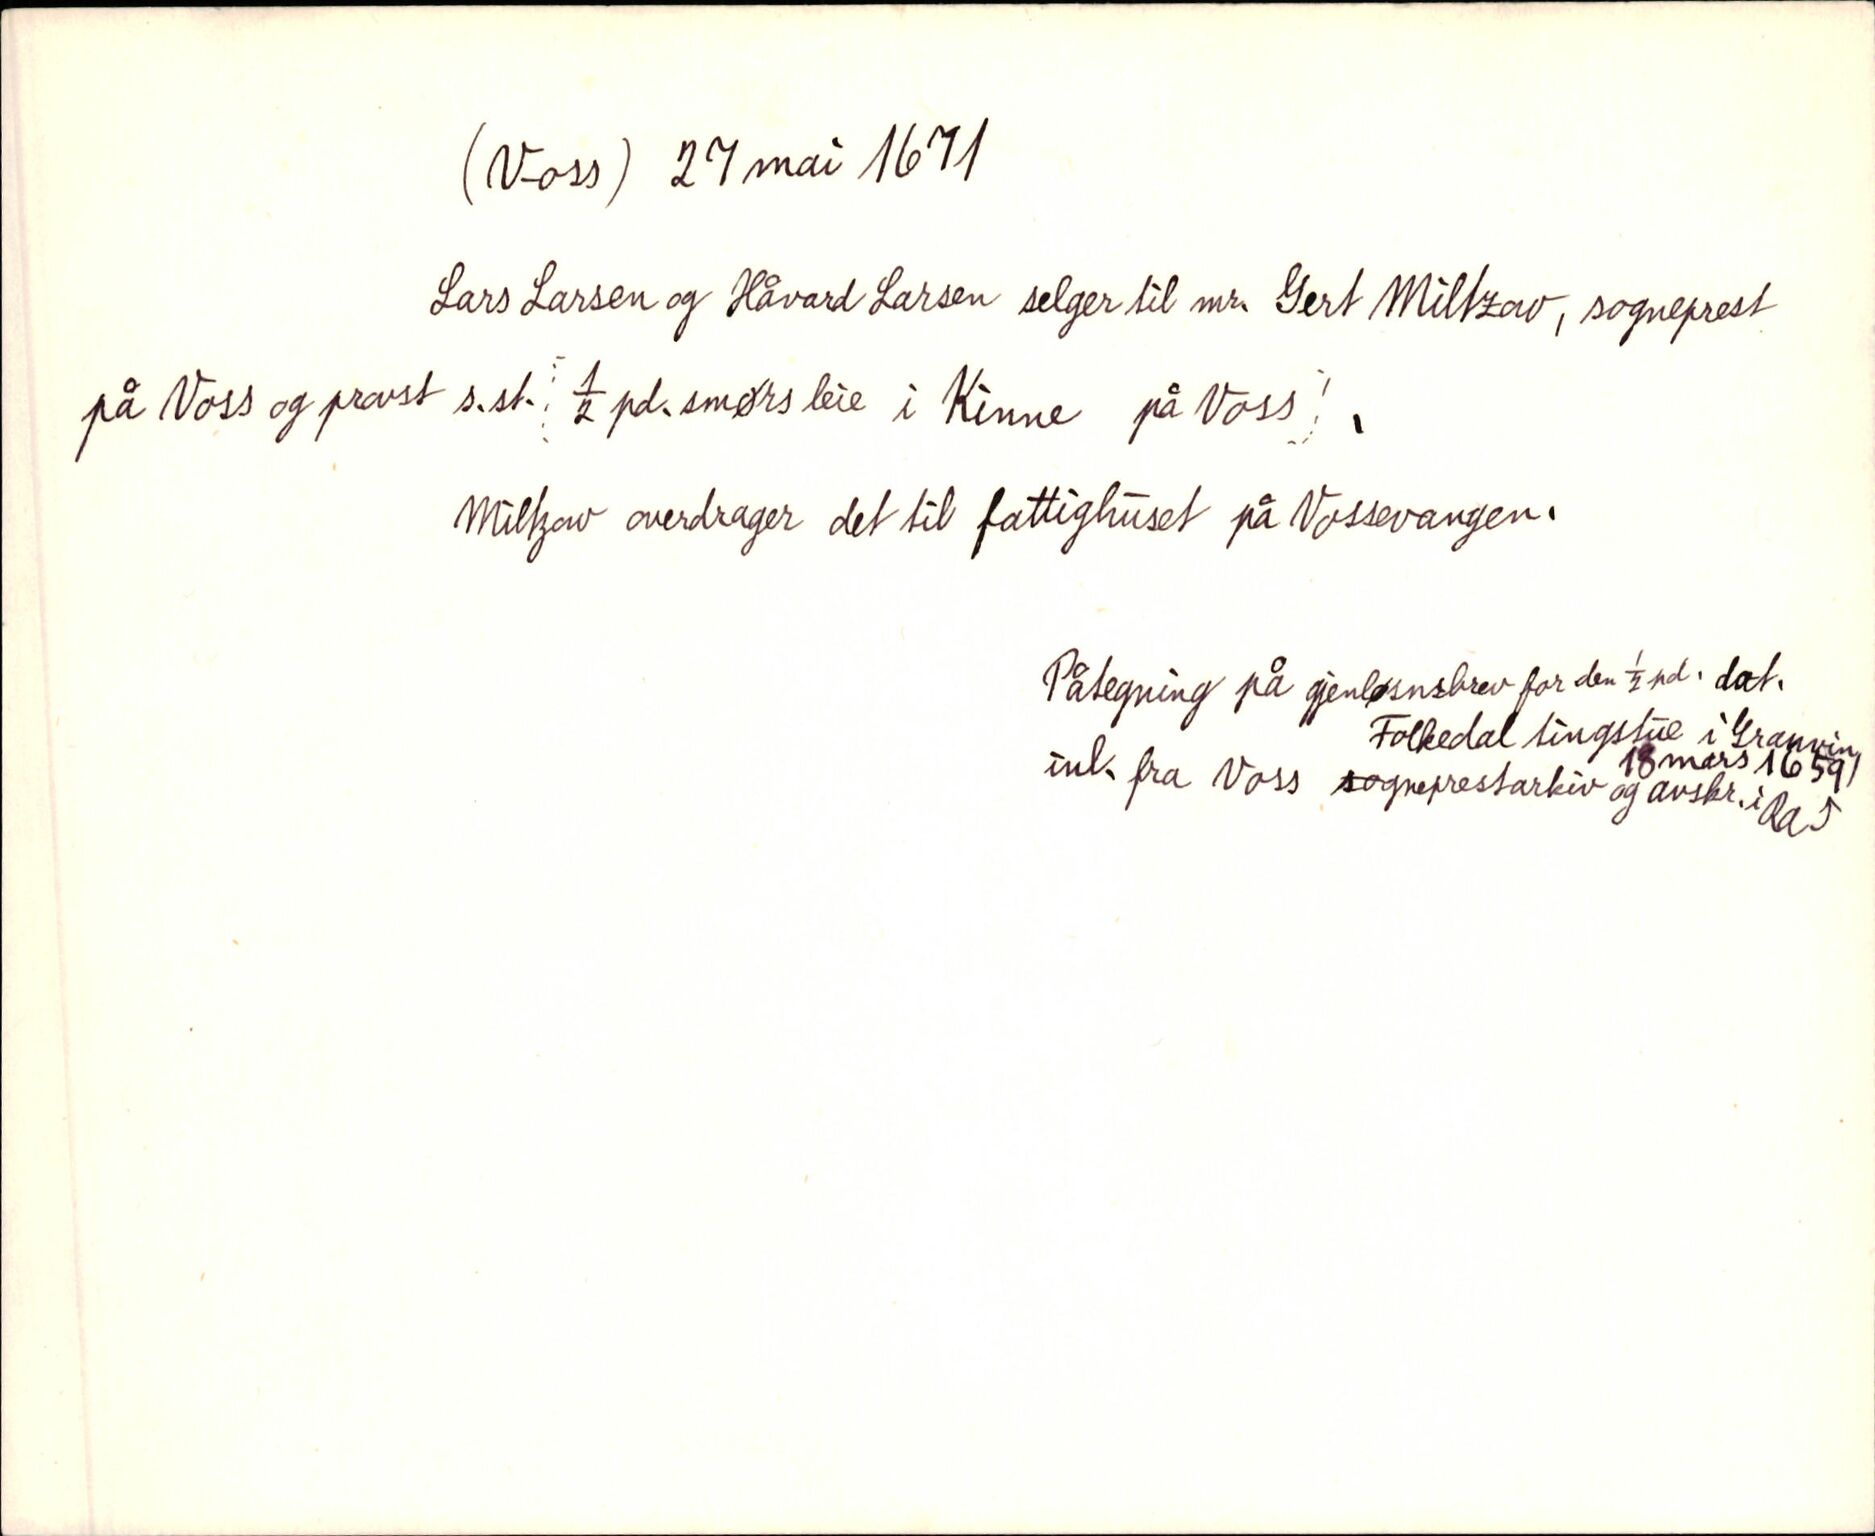 (Voss) 27 mai 1671
Lars Larsen og Håvard Larsen selger til mr. Gert Miltzow, sogneprest
på Voss og provst s.st. ½ pd. smørs leie i Kinne på Voss.
Miltzow overdrager det til fattighuset på Vossevangen.
Påtegning på gjenløsnsbrev for den ½ pd. dat.
Folkedal tingstue i Granvin
18 mars 1659
inl. fra Voss sogneprestarkiv og avskr. i RA